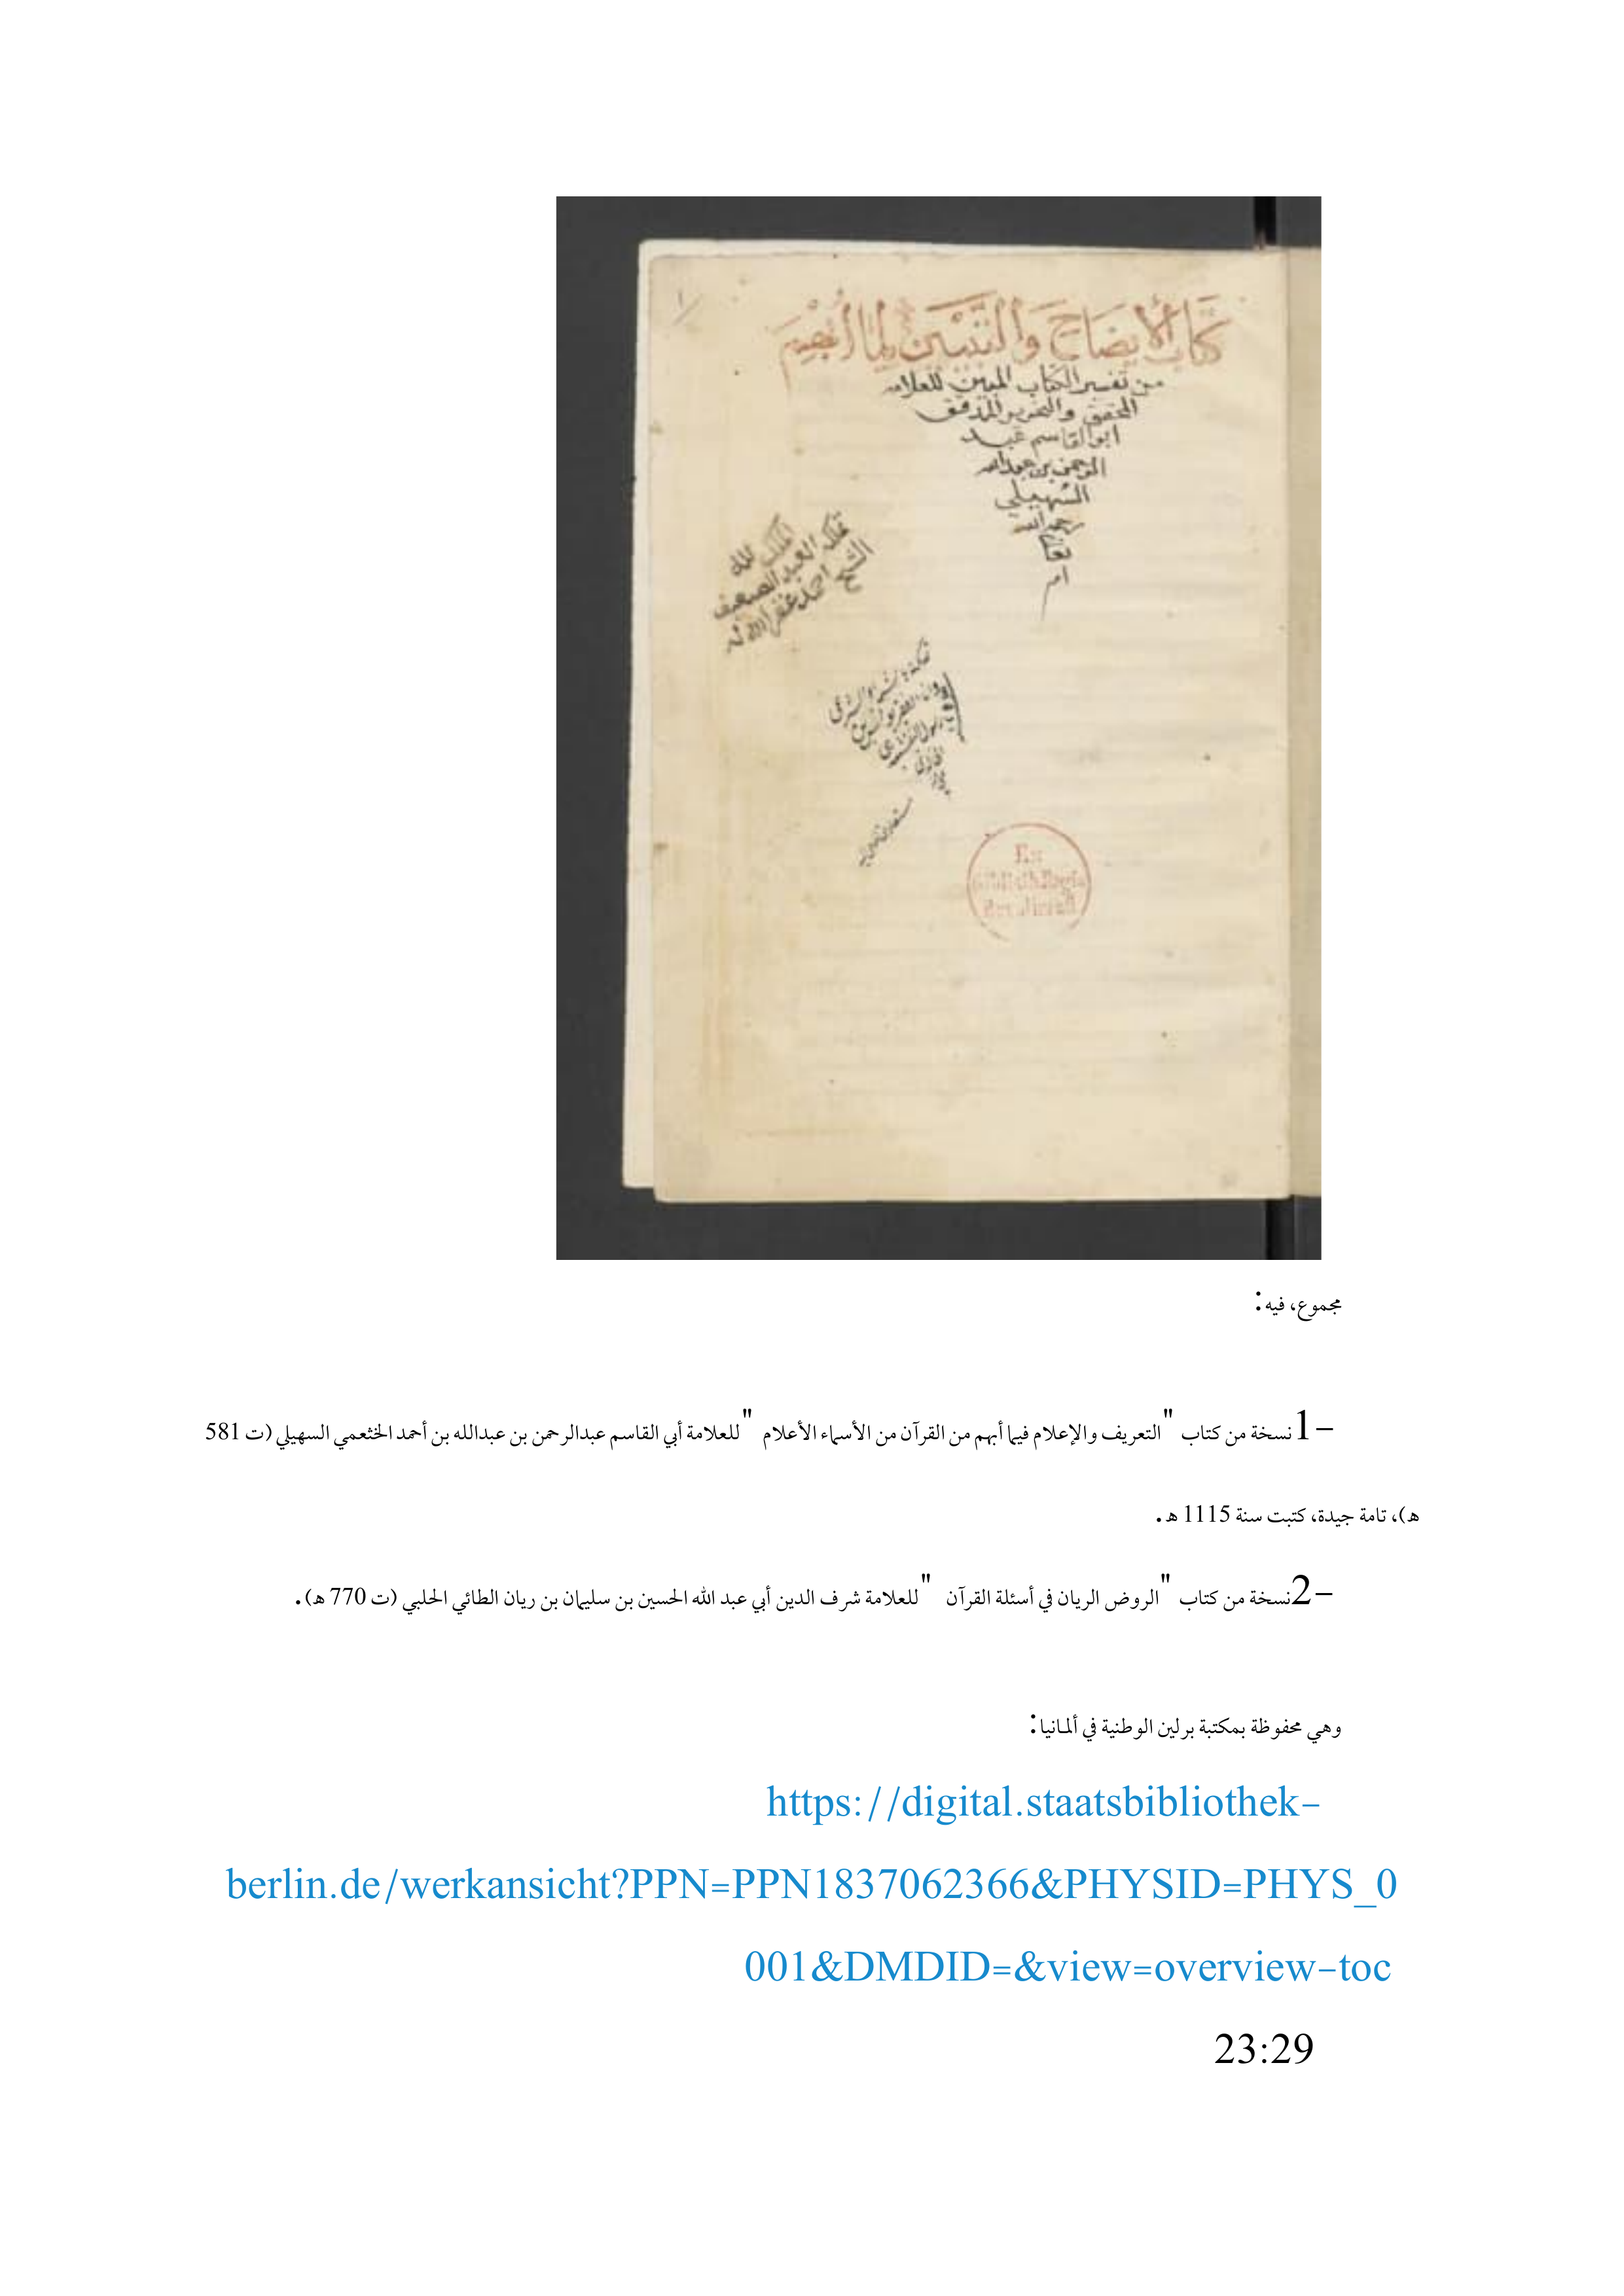 كتاب الأيضاح والتبيين لما أبهم
من تفسير الكتاب المبين للعلامه
المحقق والنحرير المدقق
ابو القاسم عبد
الرحمن بن عبد الله
السهيلي
رحمه الله
تعالى
ام
١
الملك لله
تملكه العبد الضعيف
الشيخ احمد غفر الله له
Ex
Biblioth. Regia
Berolinenſi
مجموع، فيه:
1- نسخة من كتاب "التعريف والإعلام فيما أبهم من القرآن من الأسماء الأعلام" للعلامة أبي القاسم عبدالرحمن بن عبدالله بن أحمد الخثعمي السهيلي (ت 581
هـ)، تامة جيدة، كتبت سنة 1115 هـ.
2- نسخة من كتاب "الروض الريان في أسئلة القرآن" للعلامة شرف الدين أبي عبد الله الحسين بن سليمان بن ريان الطائي الحلبي (ت 770 هـ).
وهي محفوظة بمكتبة برلين الوطنية في ألمانيا:
https://digital.staatsbibliothek-
berlin.de/werkansicht?PPN=PPN1837062366&PHYSID=PHYS_0
001&DMDID=&view=overview-toc
23:29